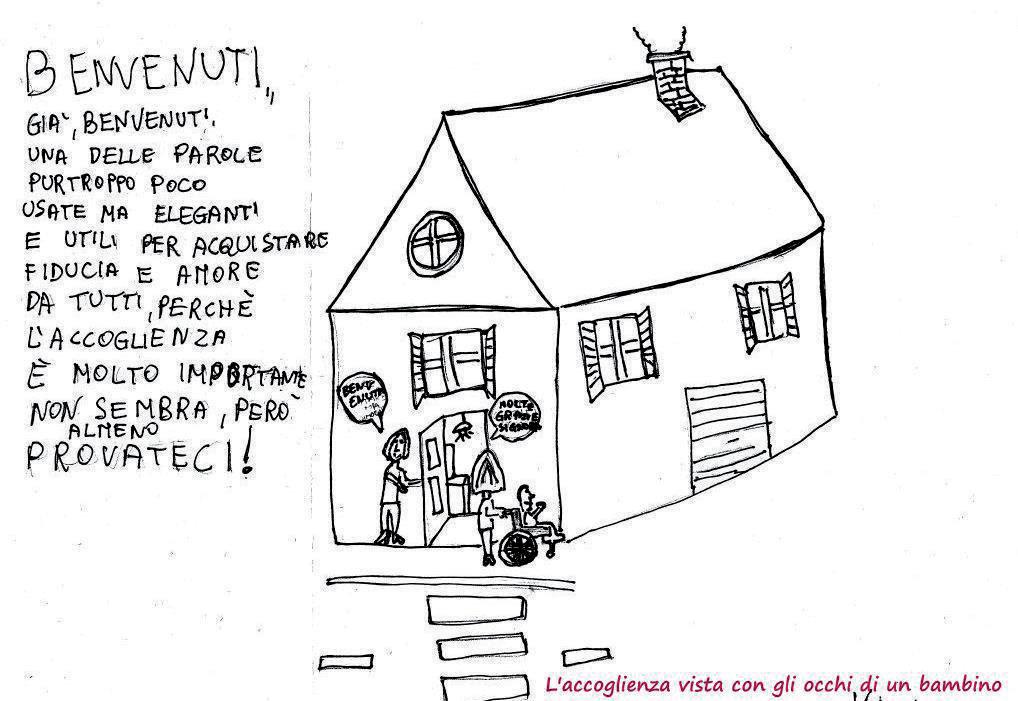 BENVENUTI,,
GIA', BENVENUTI.
UNA DELLE PAROLE
PURTROPPO POCO
USATE MA ELEGANTI
E UTILI PER ACQUISTARE
FIDUCIA E AMORE
DA TUTTI, PERCHÈ
L'ACCOGLIENZA
È MOLTO IMPORTANTE
NON SEMBRA, PERÒ
ALMENO
PROVATECI!
BENV
ENUTI
MOLTE
GRAZIE
SIGNORA
L'accoglienza vista con gli occhi di un bambino